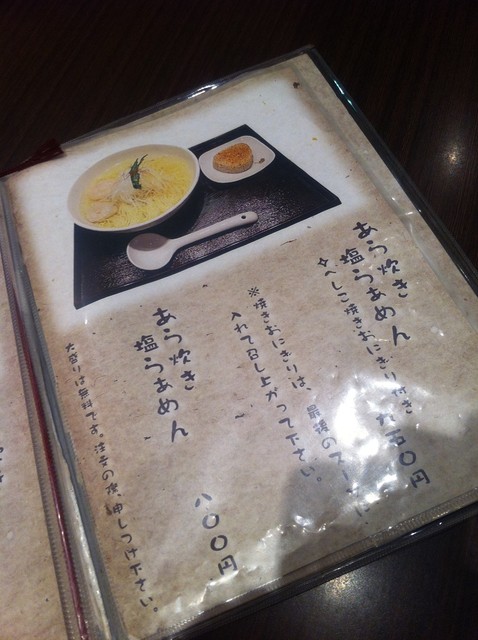 あら炊き
塩らぁめん
✧へしこ焼きおにぎり付き
九五〇円
※焼きおにぎりは、最後のスープに
入れて召し上がって下さい。
あら炊き
塩らぁめん
八〇〇円
大盛りは無料です。注文の際申しつけ下さい。